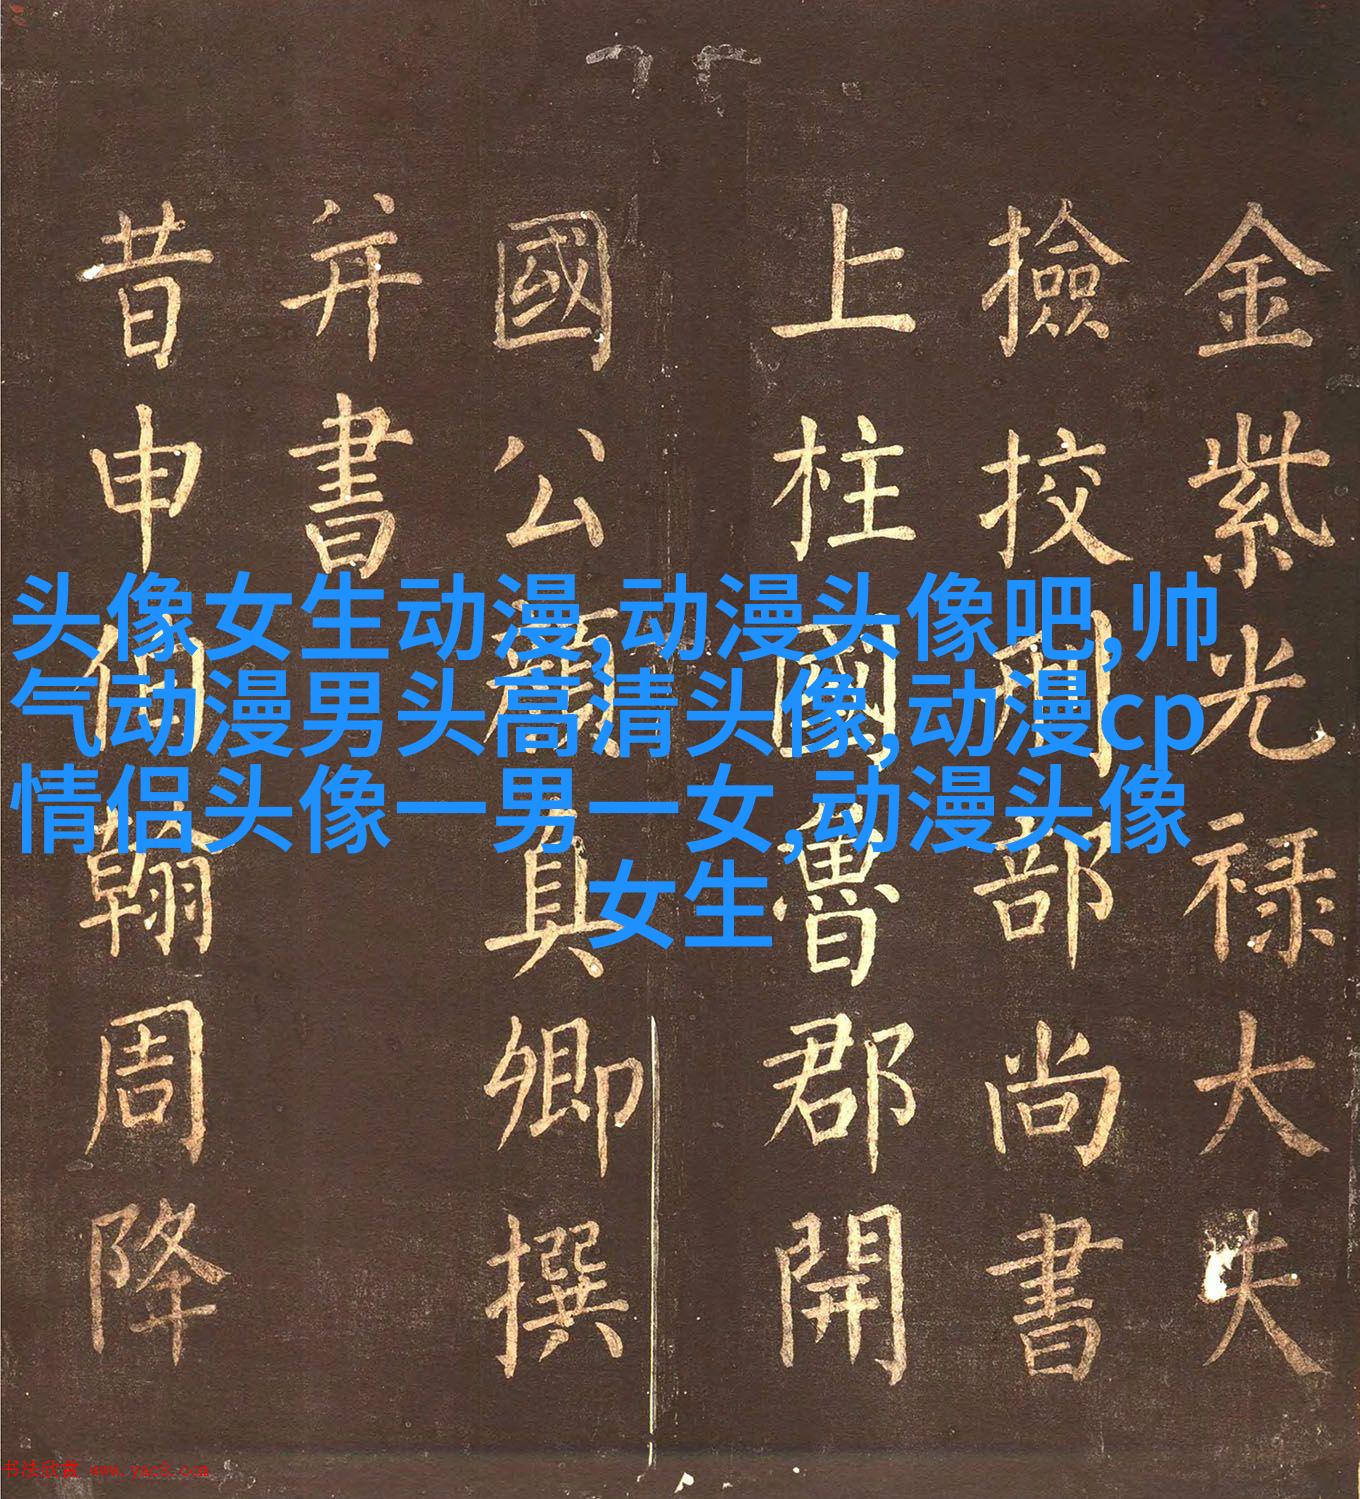 金紫光禄大夫
撿挍刑部尚書
上柱國魯郡開
國公顏真卿撰
并書
昔申伯翰周降
头像女生动漫,动漫头像吧,帅
气动漫男头高清头像,动漫cp
情侣头像一男一女,动漫头像
女生
书法欣赏 www.yac8.com